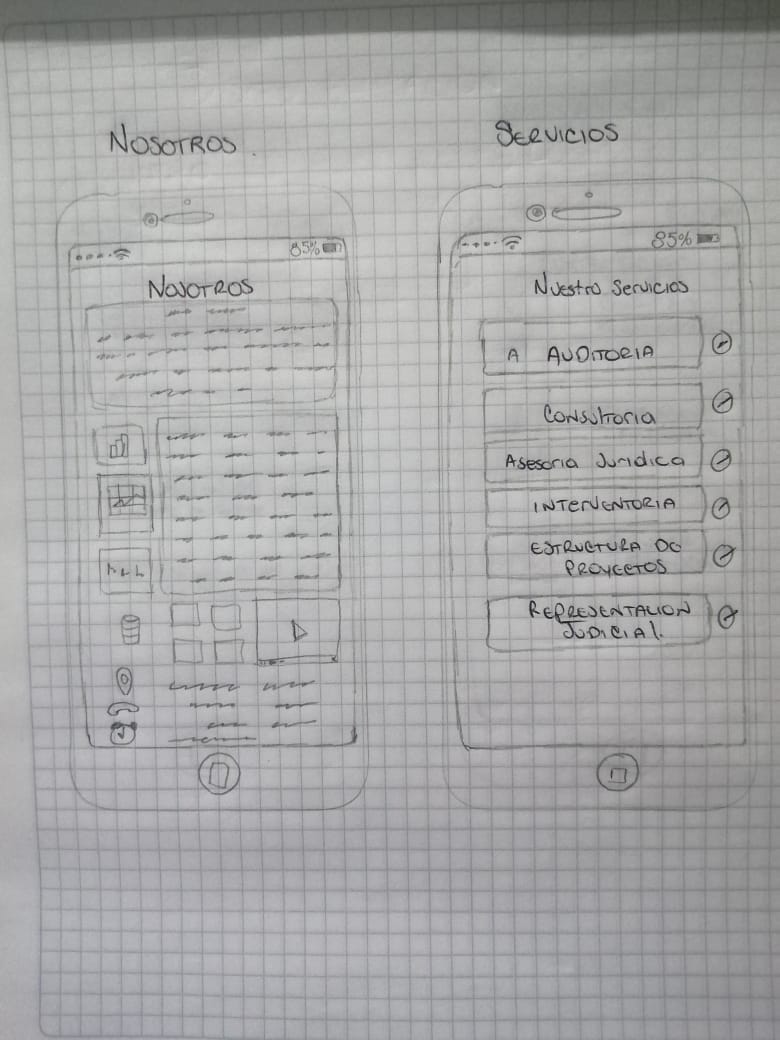 NOSOTROS.
SERVICIOS
85%
NOSOTROS
85%
Nuestro Servicios
A AUDITORIA
Consultoria
Asesoria Juridica
INTERVENTORIA
ESTRUCTURA DO
PROYECTOS
REPRESENTACION
JUDICIAL.